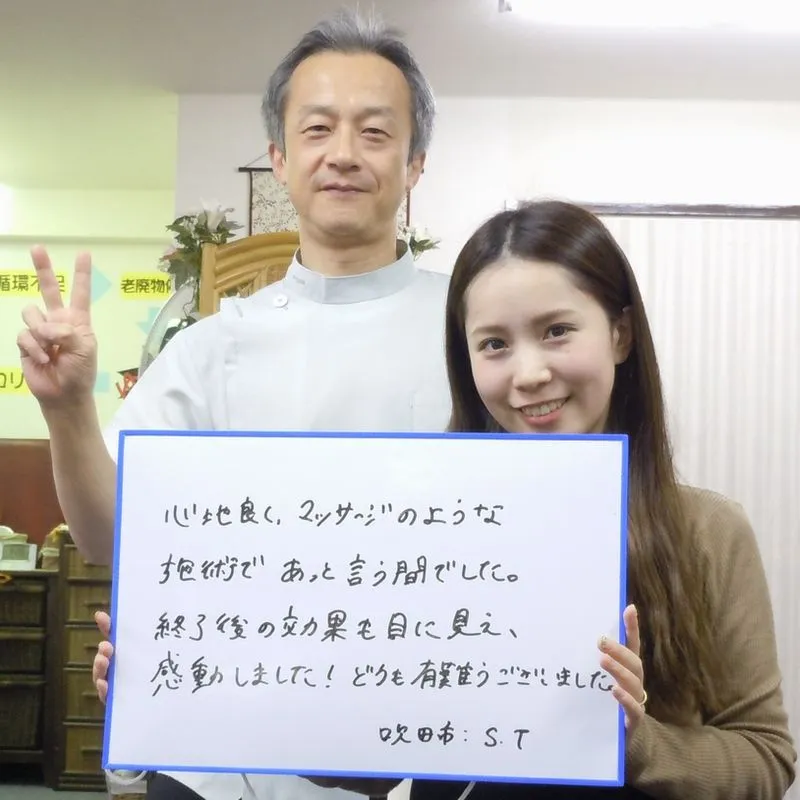 循環不足
老廃物
心地良く、マッサージのような
施術で あっと言う間でした。
終了後の効果も目に見え、
感動しました！どうも有難うございました。
吹田市：S.T